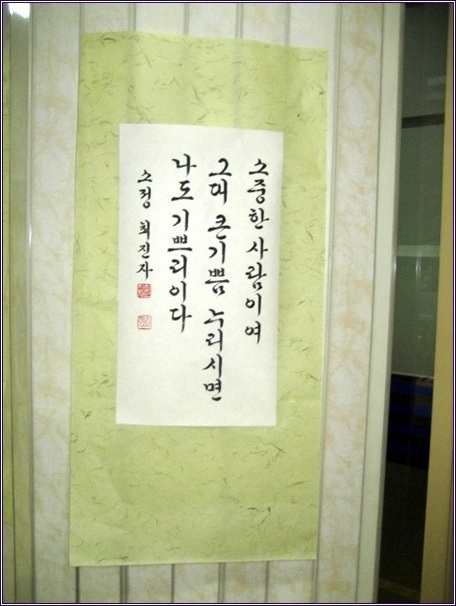 소중한 사람이여
그대 큰기쁨 누리시면
나도 기쁘리이다
소정 최진자